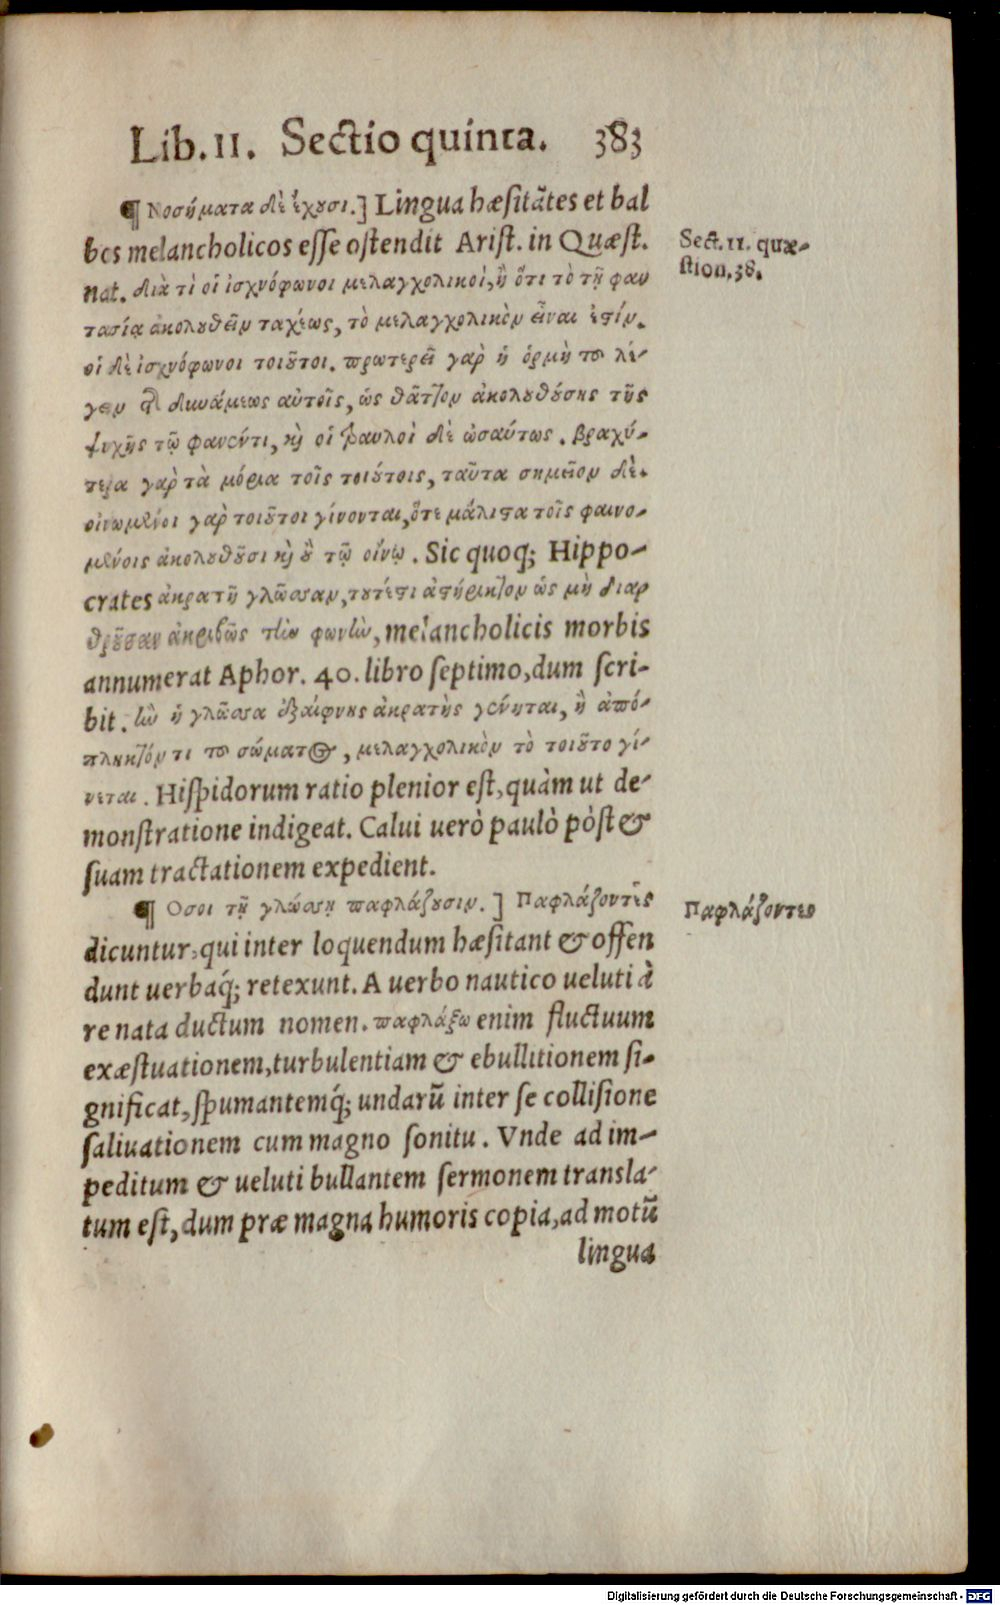 Lib. II. Sectio quinta. 383
¶ Νοσήματα δὲ ἔχουσι.] Lingua hæsitātes et bal
bos melancholicos esse ostendit Arist. in Quæst.
Sect. 11. quæ-
stion. 38.
nat. διὰ τὶ οἱ ἰσχνόφωνοι μελαγχολικοὶ, ἢ ὅτι τὸ τῇ φαν
τασίᾳ ἀκολουθεῖν ταχέως, τὸ μελαγχολικὸν εἶναι ἐστίν.
οἱ δὲ ἰσχνόφωνοι τοιοῦτοι. προτερεῖ γὰρ ἡ ὁρμὴ τοῦ λέ-
γειν τῆς δυνάμεως αὐτοῖς, ὡς θᾶττον ἀκολουθούσης τῆς
ψυχῆς τῷ φανέντι, καὶ οἱ τραυλοὶ δὲ ὡσαύτως. βραχύ-
τερα γὰρ τὰ μόρια τοῖς τοιούτοις, ταῦτα σημεῖον δὲ.
οἰνωμένοι γὰρ τοιοῦτοι γίνονται, ὅτε μάλιστα τοῖς φαινο-
μένοις ἀκολουθοῦσι καὶ οὐ τῷ οἴνῳ. Sic quoq; Hippo-
crates ἀκρατῆ γλῶσσαν, τουτέστι ἀστήρικτον ὡς μὴ διαρ
θροῦσαν ἀκριβῶς τὴν φωνὴν, melancholicis morbis
annumerat Aphor. 40. libro septimo, dum scri-
bit. ἢν ἡ γλῶσσα ἐξαίφνης ἀκρατὴς γένηται, ἢ ἀπό-
πληκτόν τι τοῦ σώματος, μελαγχολικὸν τὸ τοιοῦτο γί-
νεται. Hispidorum ratio plenior est, quàm ut de-
monstratione indigeat. Calui uerò paulò pòst &
suam tractationem expedient.
¶ Οσοι τῇ γλώσσῃ παφλάζουσιν.] Παφλάζοντες
Παφλάζοντες
dicuntur, qui inter loquendum hæsitant & offen
dunt uerbaq́; retexunt. A uerbo nautico ueluti à
re nata ductum nomen. παφλάζω enim fluctuum
exæstuationem, turbulentiam & ebullitionem si-
gnificat, spumantemq́; undarū inter se collisione
saliuationem cum magno sonitu. Vnde ad im-
peditum & ueluti bullantem sermonem transla-
tum est, dum præ magna humoris copia, ad motū
lingua
Digitalisierung gefördert durch die Deutsche Forschungsgemeinschaft - DFG